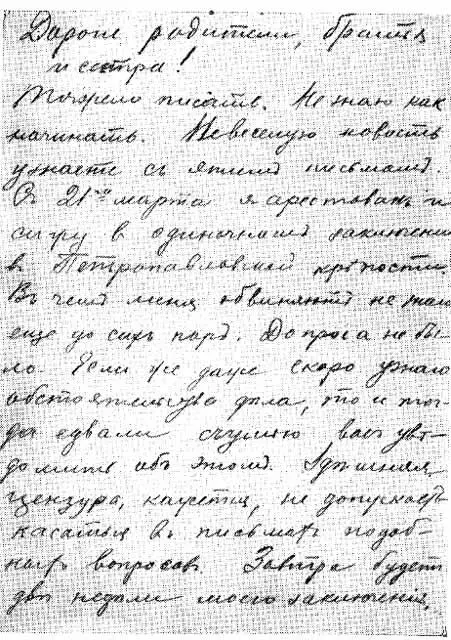 Дорогие родители, братья
и сестра!
Тяжело писать. Не знаю как
начинать. Невеселую новость
узнаете съ этимъ письмомъ.
Съ 21го марта я арестованъ и
сижу в одиночномъ заключении
в Петропавловской крѣпости.
Въ чемъ меня обвиняютъ не знаю
еще до сихъ поръ. Допроса не бы-
ло. Если же даже скоро узнаю
обстоятельства дѣла, то и тог-
да едвали съумѣю васъ увѣ-
домить объ этомъ. Здѣшняя
цензура, кажется, не допускаетъ
касаться въ письмахъ подоб-
ныхъ вопросовъ. Завтра будетъ
двѣ недѣли моего заключения,